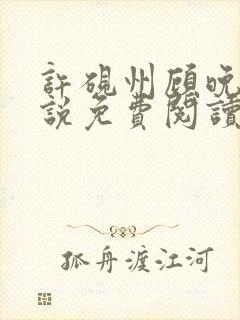 許硯州顾晚
説免費閱讀
孤舟渡江河